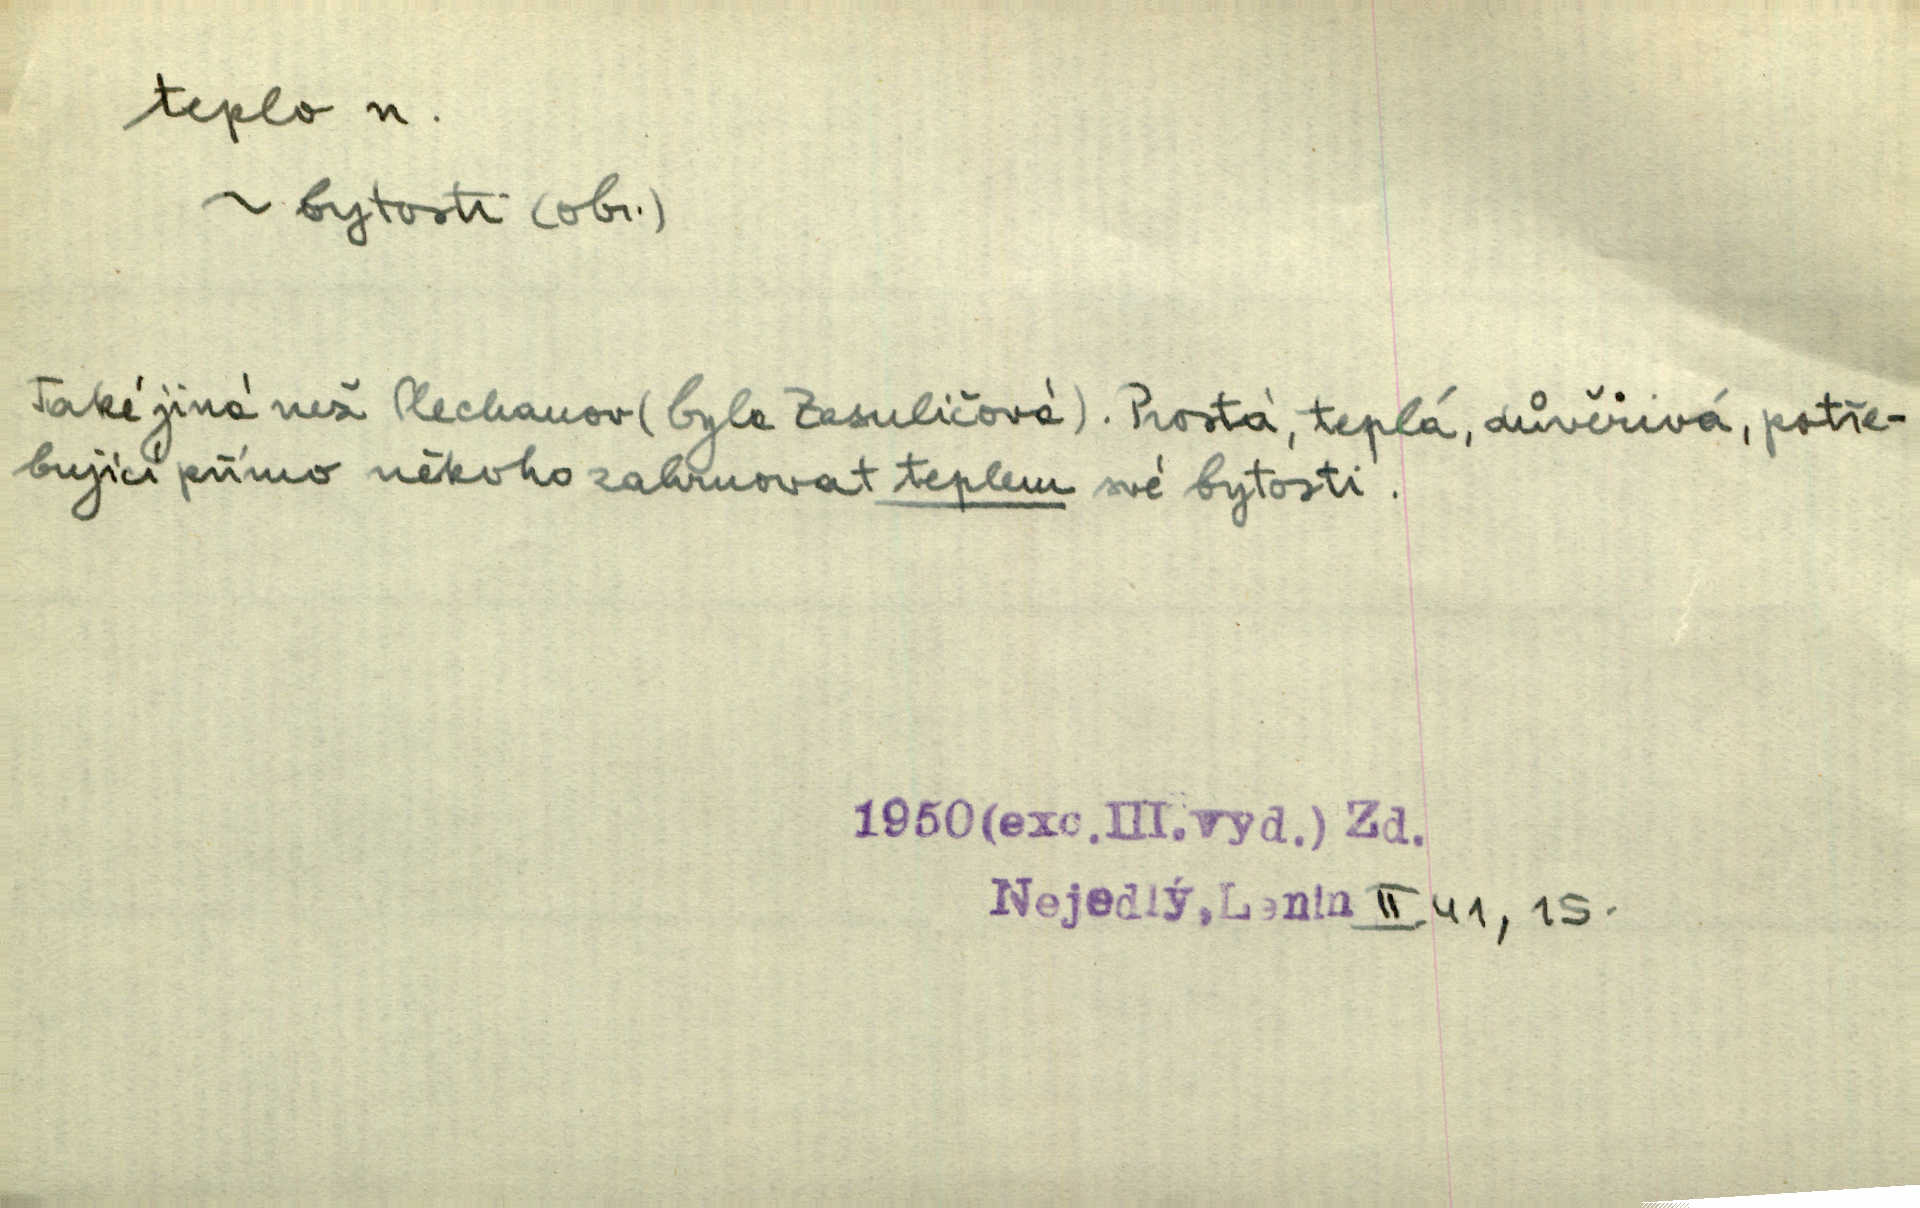 teplo n.
~ bytosti (obr.)
Také jiná než Plechanov (byla Zasuličová). Prostá, teplá, důvěřivá, potře-
bující přímo někoho zahrnovat teplem své bytosti.
1950(exc.III.vyd.) Zd.
Nejedlý, Lenin II 41, 15.